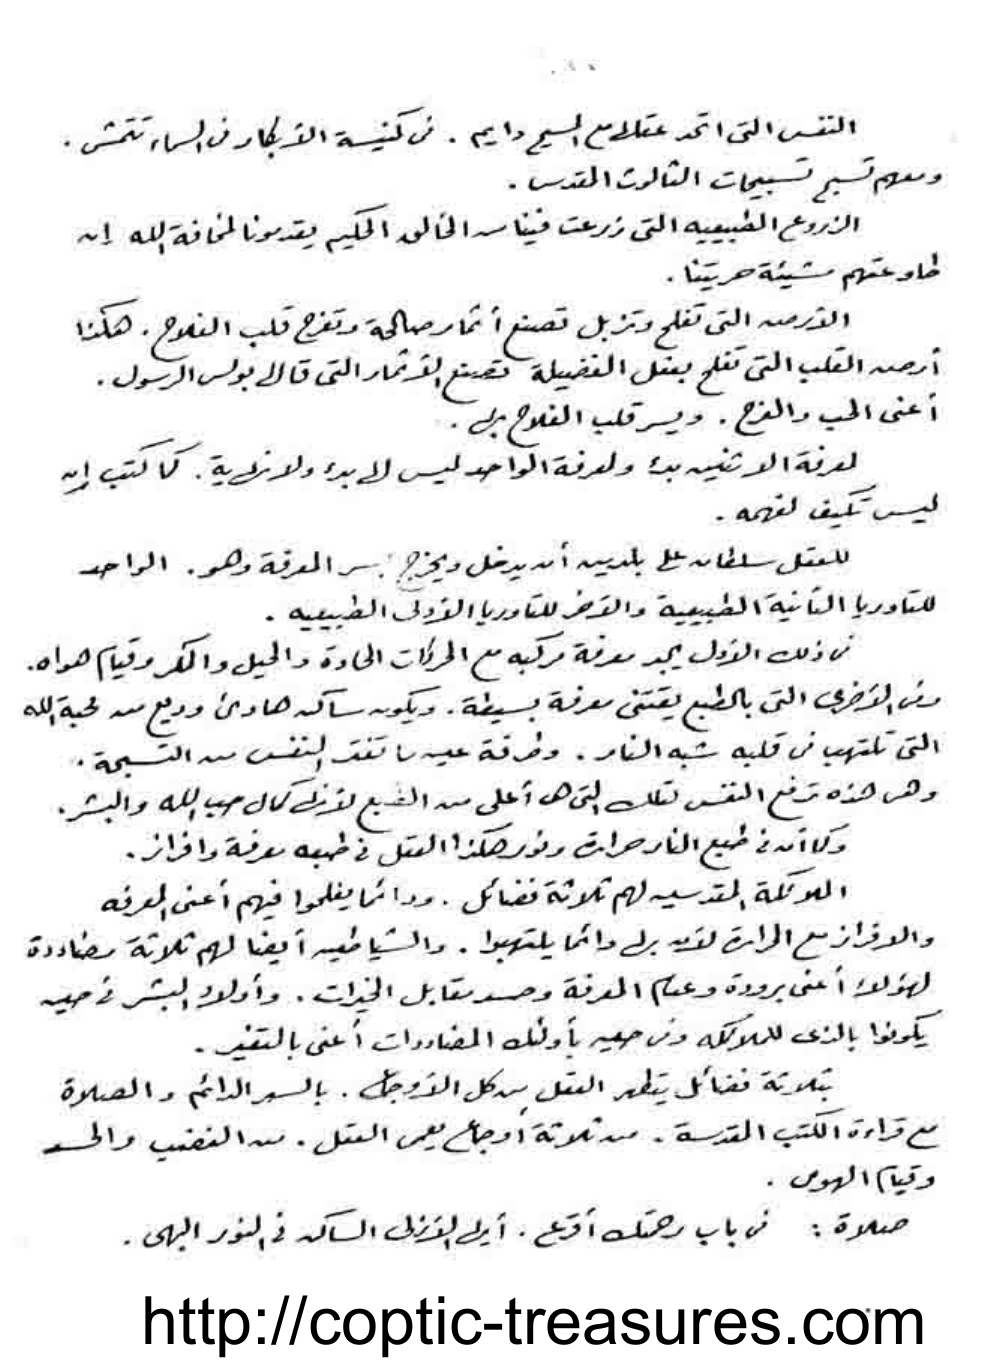 النفس التى اتحد عقلها مع المسيح دايم . فى كنيسة الأبكار فى السماء تتمشى .
ومعهم تسبح تسبيحات الثالوث المقدس .
الزروع الطبيعيه التى زرعت فينا من الخالق الحكيم يقدمونا لمخافة الله إن
طاوعتهم مشيئة حريتنا .
الأرض التى تفلح وتزبل تصنع أثمار صالحة وتفرح قلب الفلاح . هكذا
أرض القلب التى تفلح بعمل الفضيلة تصنع الأثمار التى قال بولس الرسول .
أعنى الحب والفرح . ويسر قلب الفلاح بها .
لمعرفة الاثنين بدء ولمعرفة الواحد ليس لها بدء ولا نهاية . كما كتب إن
ليس تكييف لفهمه .
للعقل سلطان على بلدين أن يدخل ويخرج بسر المعرفة وهو . الواحد
للتاوريا الثانية الطبيعية والآخر للتاوريا الأولى الطبيعيه .
فى ذلك الأول يجد معرفة مركبه مع الحركات الحادة والحيل والمكر وقيام هواه .
وفى الأخرى التى بالطبع يقتنى معرفة بسيطة . ويكون ساكن هادئ وديع من محبة الله
التى تلتهب فى قلبه شبه النار . وطرفة عين ما تفتر النفس من التسبحة .
وهى هذه ترفع النفس لتلك التى هى أعلى من الطبع لأنها كمال حب الله والبشر .
وكما أن فى طبع النار حرارة ونور هكذا العقل فى طبعه معرفة وافراز .
الملائكة المقدسين لهم ثلاثة فضائل . ودائما يفلحوا فيهم أعنى المعرفه
والافراز مع الحرارة لأن بها دائما يلتهبوا . والشياطين أيضا لهم ثلاثة مضاددة
لهؤلاء أعنى برودة وعدم المعرفة وحسد مقابل الخيرات . وأولاد البشر فى حين
يكونوا بالذى للملائكه وفى حين بأولئك المضاددات أعنى بالتغيير .
بثلاثة فضائل يتطهر العقل من كل الأوجاع . بالسهر الدائم والصلاة
مع قراءة الكتب المقدسة . من ثلاثة أوجاع يعمى العقل . من الغضب والحسد
وقيام الهوى .
صلاة : فى باب رحمتك أقرع . أيها الأزلى الساكن فى النور البهى .
http://coptic-treasures.com